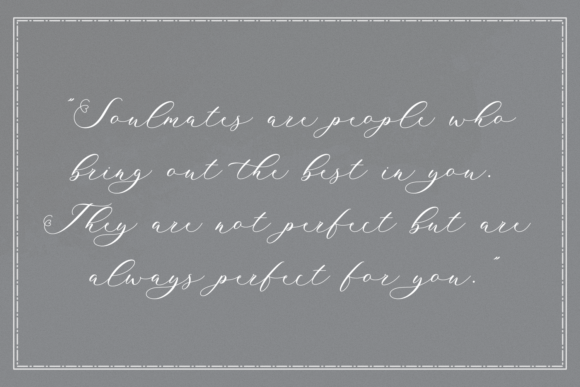 "Soulmates are people who
bring out the best in you.
They are not perfect but are
always perfect for you."